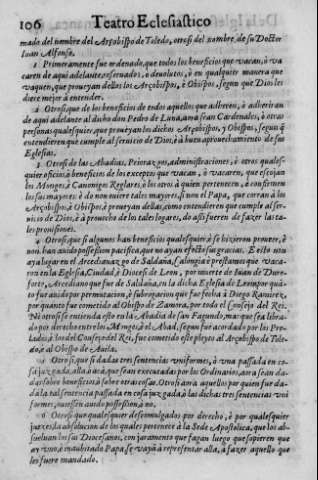 106 Teatro Eclesiastico
mado del nombre del Arçobispo de Toledo, otrosi del nombre de su Doctor
Iuan Alfonso.
1 Primeramente fue ordenado, que todos los beneficios que vacan, ò va
caren de aqui adelante, reseruados, ò deuolutos, ò en qualquier manera que
vaquen, que prouean dellos los Arçobispos, è Obispos, segun que Dios les
diere mejor à entender.
2 Otrosi, que de los beneficios de todos aquellos que adhieren, ò adheriràn
de aqui adelante al dicho don Pedro de Luna, aunq̃ sean Cardenales, ò otras
personas qualesquier, que prouean los dichos Arçobispos, y Obispos, segun q̃
entendieren que cumple al seruicio de Dios, è à buen aprouechamiento de sus
Eglesias.
3 Otrosi de las Abadias, Priorazgos, administraciones, è otros quales-
quier oficios, è beneficios de los exceptos que vacan, ò vacaren, que escojan
los Monges, è Canonigos Reglares, è los otros à quien pertenecen, è confirmen
los sus mayores: è do non ouiere tales mayores, si non el Papa, que corran à los
Arçobispos, è Obispos, è prouean dellas, como entendieren que cumple al ser-
uicio de Dios, è à prouecho de los tales logares, do assi fueren de fazer las ta-
les prouisiones.
4 Otrosi, que si algunos han beneficios qualesquier, è se hizieron proueer, è
non han auido possession pacifica, que no ayan efecto sus gracias. E esto aun
aya logar en el Arcedianazgo de Saldaña, (albongia è prestamos que vaca-
ron en la Eglesia, Ciudad, è Diocesi de Leon, por muerte de Iuan de Dure-
forte, Arcediano que fue de Saldaña, en la dicha Eglesia de Leon por quan-
to fue auido por permutacion, è subrogacion que fue fecha à Diego Ramirez,
por quanto fue cometido al Obispo de Zamora, por todo el Consejo del Rei.
Ni otrosi se entienda esto en la Abadia de san Fagundo, mas que sea libra-
do por derecho entre los Monges, è el Abad, segun fue acordado por los Pre-
lados, è los del Consejo del Rei, fue cometido este pleyto al Arçobispo de Tole-
do, è al Obispo de Auila.
5 Otrosi, que si dadas tres sentencias vniformes, è vna passada en co-
sa juzgada, alla, à acà, que sean executadas por los Ordinarios, aora sean da-
das sobre beneficios, è sobre otras cosas. Otrosi, ama aquellos por quien fue da-
da la tal sentencia passada en cosa juzgada, è las dichas tres sentencias vni
formes, non fueren auido possession, è no.
6 Otrosi que qualesquier descomulgados por derecho, è por qualesquier
juezes, la absolucion de los quales pertenece à la Sede Apostolica, que los ab-
sueluan los sus Diocesanos, con juramento que fagan luego que sopieren que
ay vno, è indubitado Papa, se vayan à representar alla, à fazer aquello que
les fuere mandado.